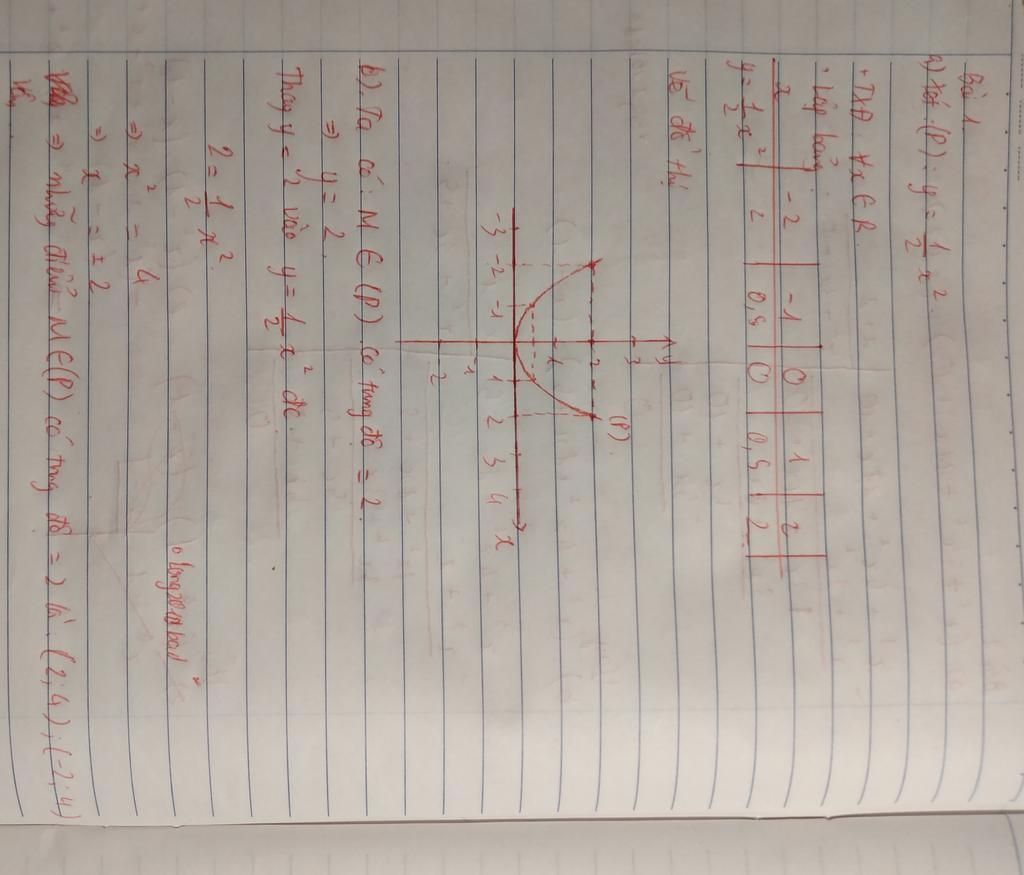 Bài 1
a) Xét (P): y = 1/2 x²
• TXĐ: ∀x ∈ R
• Lập bảng
x -2 -1 0 1 2
y = 1/2 x² 2 0,5 0 0,5 2
Vẽ đồ thị
y
3
(P)
2
1
-3 -2 -1 1 2 3 4 x
-1
-2
b) Ta có: M ∈ (P) có tung độ = 2.
⇒ y = 2
Thay y = 2 vào y = 1/2 x² đc.
2 = 1/2 x².
⇒ x² = 4
⇒ x = ±2
⇒ những điểm M ∈ (P) có tung độ = 2 là: (2; 4); (-2; 4)